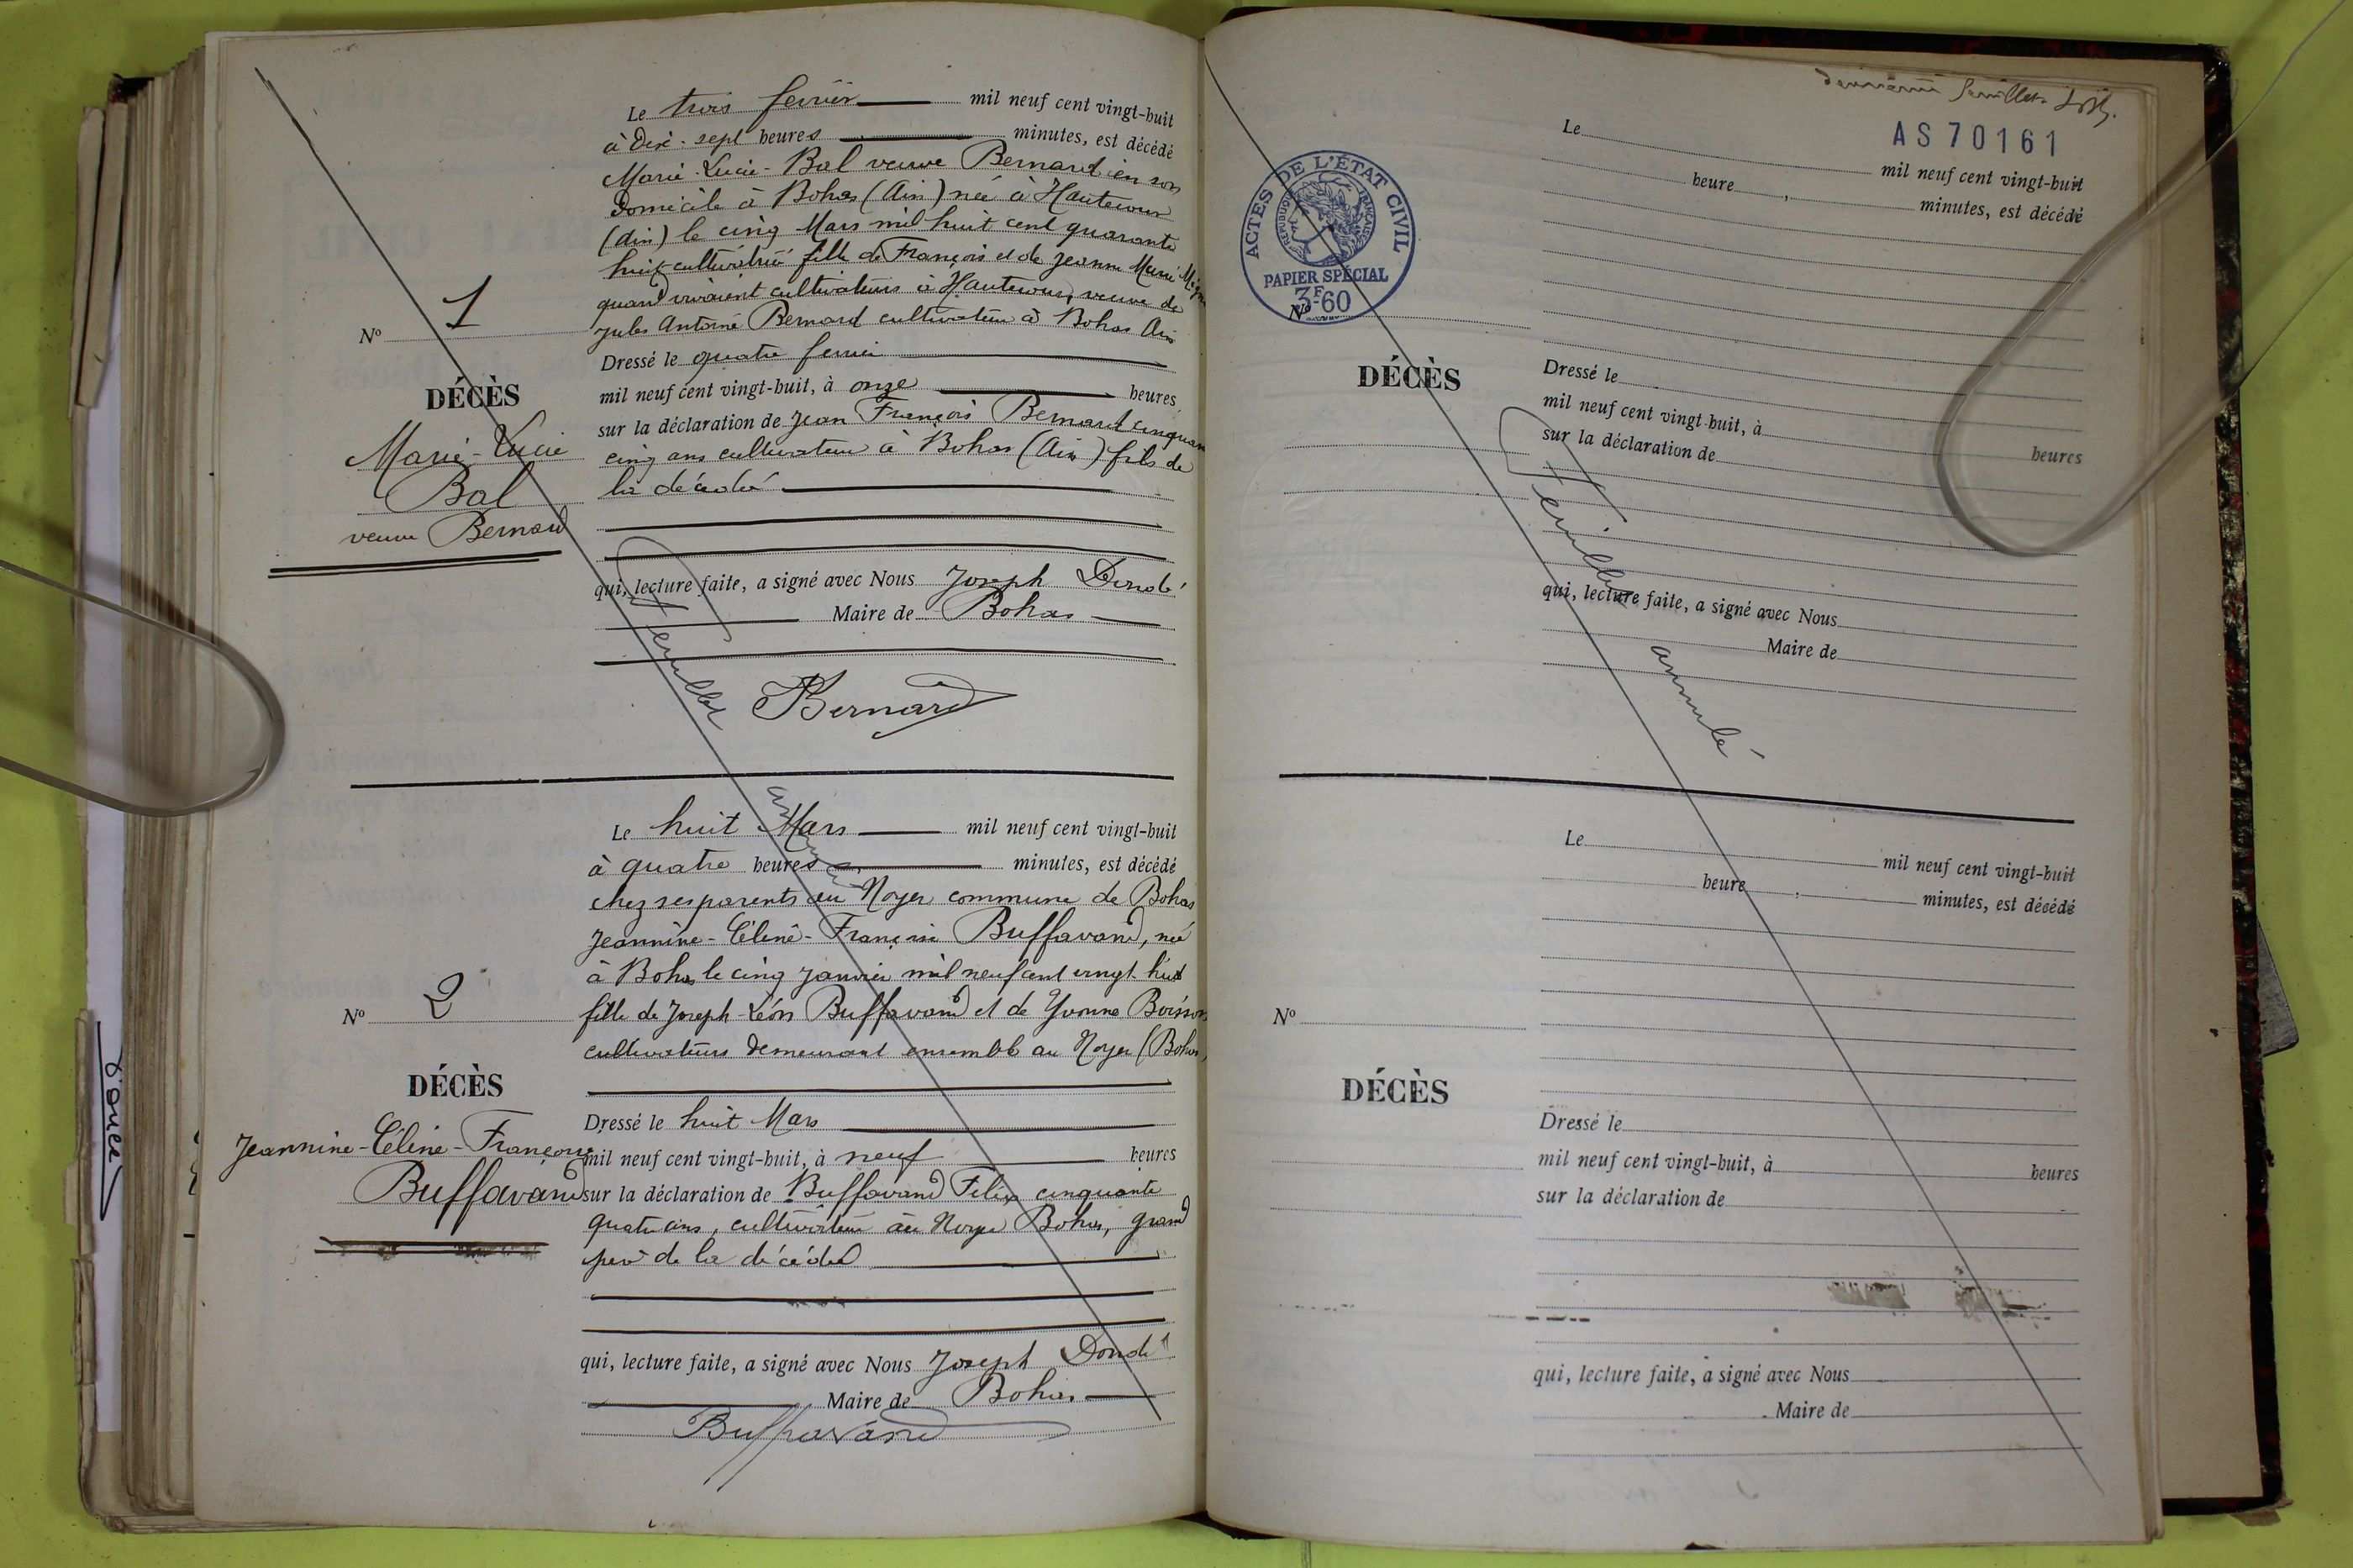 Le trois fevrier mil neuf cent vingt-huit
à Dix-sept heures minutes, est décédé
Marie-Lucie-Bal veuve Bernard en son
Domicile à Bohas (Ain) née à Hautecour
(Ain) le cinq Mars mil huit cent quarante
huit cultivatrice fille de François et de Jeanne Marie
quand vivaient cultivateurs à Hautecour, veuve de
Jules Antoine Bernard cultivateur à Bohas Ain
Nº 1
Dressé le quatre fevrier
mil neuf cent vingt-huit, à onze heures
DÉCÈS
sur la déclaration de Jean François Bernard cinquante
Marie-Lucie
cinq ans cultivateur à Bohas (Ain) fils de
Bal
la décédée
veuve Bernard
qui, lecture faite, a signé avec Nous Joseph Dondé
Maire de Bohas
Feuillet
Bernard
annulé
Le huit Mars mil neuf cent vingt-huit
à quatre heures minutes, est décédé
chez ses parents au Noyer commune de Bohas
Jeannine-Céline-Françoise Buffavand, née
à Bohas le cinq Janvier mil neuf cent vingt-huit
Nº 2
fille de Joseph-Léon Buffavand et de Yvonne Boisson
cultivateurs demeurant ensemble au Noyer (Bohas)
DÉCÈS
Dressé le huit Mars
Jeannine-Céline-Françoise
mil neuf cent vingt-huit, à neuf heures
Buffavand
sur la déclaration de Buffavand Félix cinquante
quatre ans, cultivateur au Noyer Bohas, grand
père de la décédée
qui, lecture faite, a signé avec Nous Joseph Dondé
Maire de Bohas.
Buffavand
d'ouce
feuillet
AS 70161
Le mil neuf cent vingt-huit
heure , minutes, est décédé
ACTES DE L'ÉTAT CIVIL
RÉPUBLIQUE FRANÇAISE
PAPIER SPÉCIAL
3F60
Nº
DÉCÈS
Dressé le
mil neuf cent vingt-huit, à heures
sur la déclaration de
Feuillet
qui, lecture faite, a signé avec Nous
Maire de
annulé
Le mil neuf cent vingt-huit
heure , minutes, est décédé
Nº
DÉCÈS
Dressé le
mil neuf cent vingt-huit, à heures
sur la déclaration de
qui, lecture faite, a signé avec Nous
Maire de